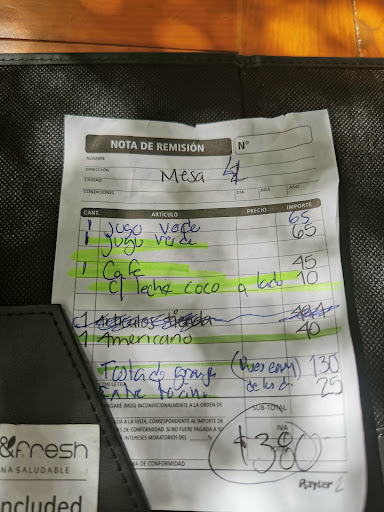 NOTA DE REMISIÓN N°
NOMBRE
DIRECCIÓN
CIUDAD
Mesa 4
CONDICIONES DÍA MES AÑO
CANT. ARTÍCULO PRECIO IMPORTE
1 Jugo Verde 65
1 Jugo Verde 65
1 Cafe 45
c/ leche coco a lado 10
1 Artículos tienda
1 Americano 40
130
CON LETRA 25
PAGARÉ (MOS) INCONDICIONALMENTE A LA ORDEN DE
SUB-TOTAL
A LA VISTA, CORRESPONDIENTE AL IMPORTE DE
DE CONFORMIDAD. SI NO FUERE PAGADA A SU
INTERESES MORATORIOS DEL %
IVA
$380
DE CONFORMIDAD
&fresh
NA SALUDABLE
ncluded